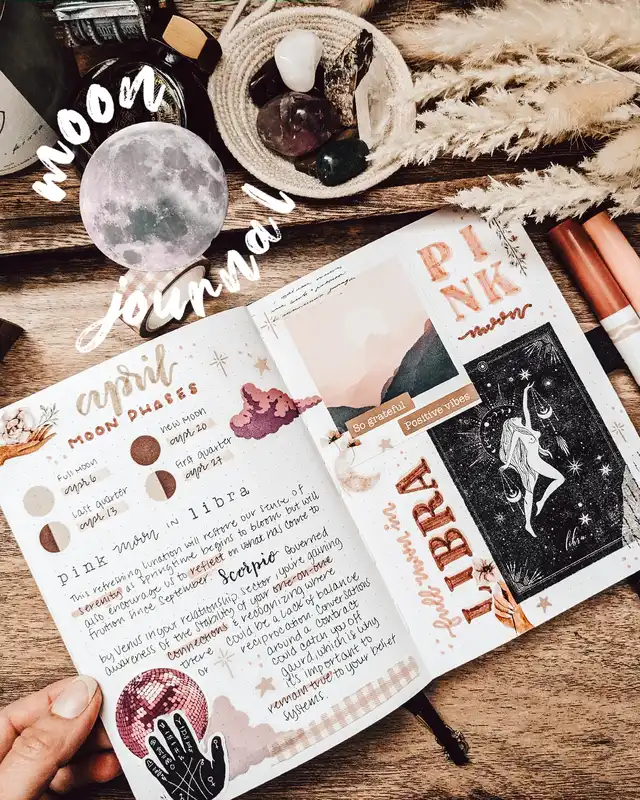 moon
journal
april
MOON PHASES
Full Moon
apr 6
New Moon
apr 20
Last Quarter
apr 13
First Quarter
apr 27
pink moon in libra
This refreshing lunation will restore our sense of
serenity as springtime begins to bloom but will
also encourage us to reflect on what has come to
fruition since September. Scorpio Governed
by Venus in your relationship sector, you're gaining
awareness of the stability of your one-on-one
connections & recognizing where
there could be a lack of balance
or reciprocation. Conversations
around a contract
could catch you off
gaurd, which is why
it's important to
remain true to your belief
systems.
PINK
moon
So grateful
Positive vibes
full moon in
LIBRA
libra